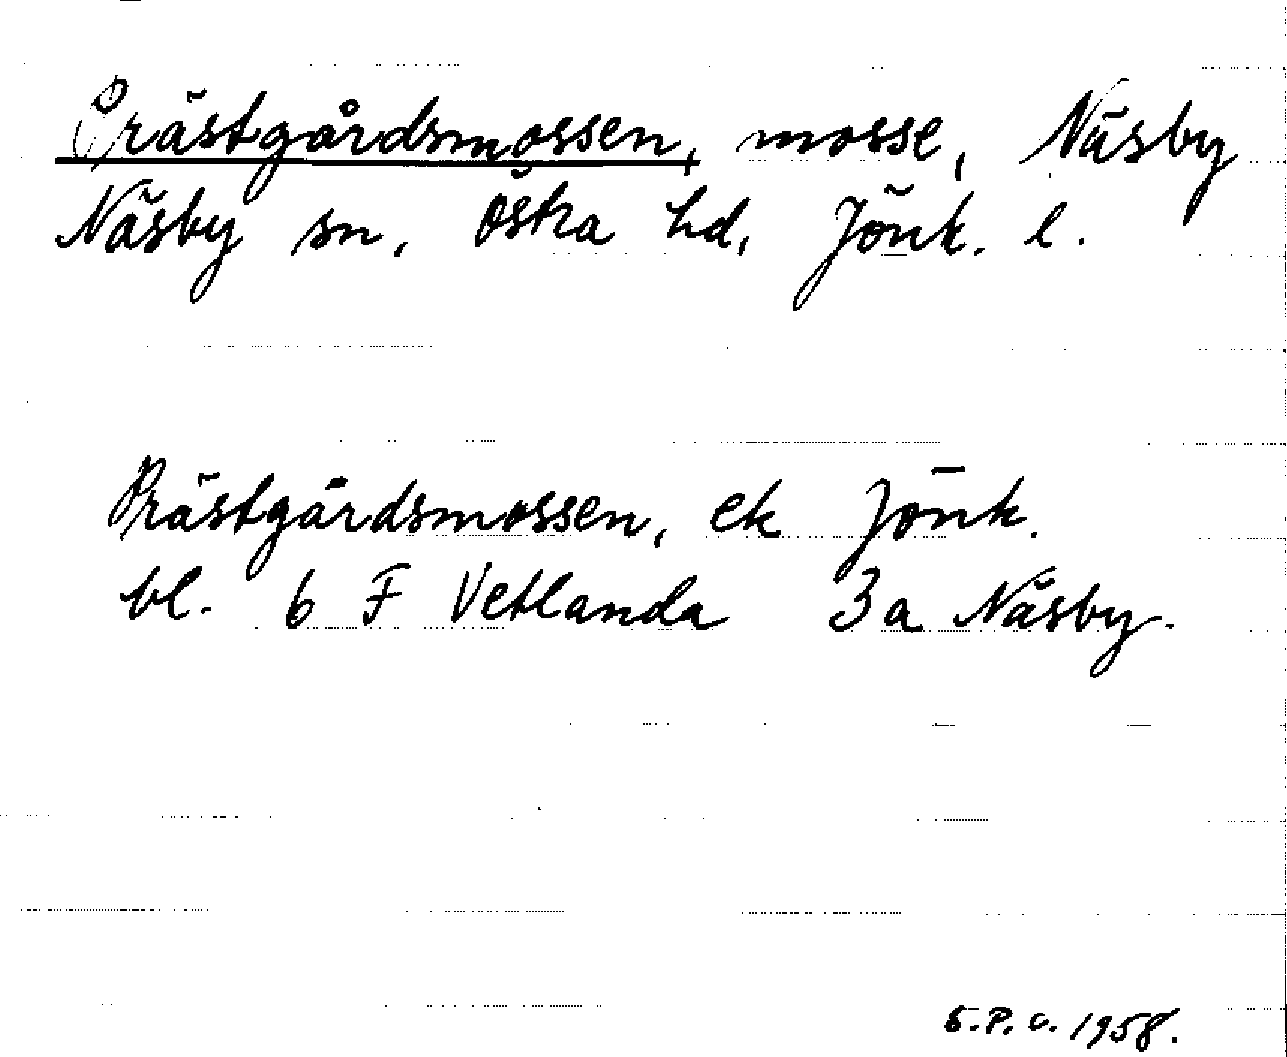 Prästgårdsmossen, mosse, Näsby
Näsby sn, Östra hd, Jönk. l.
Prästgårdsmossen, ek Jönk.
bl. 6 F Vetlanda 3a Näsby.
S.P.O. 1958.